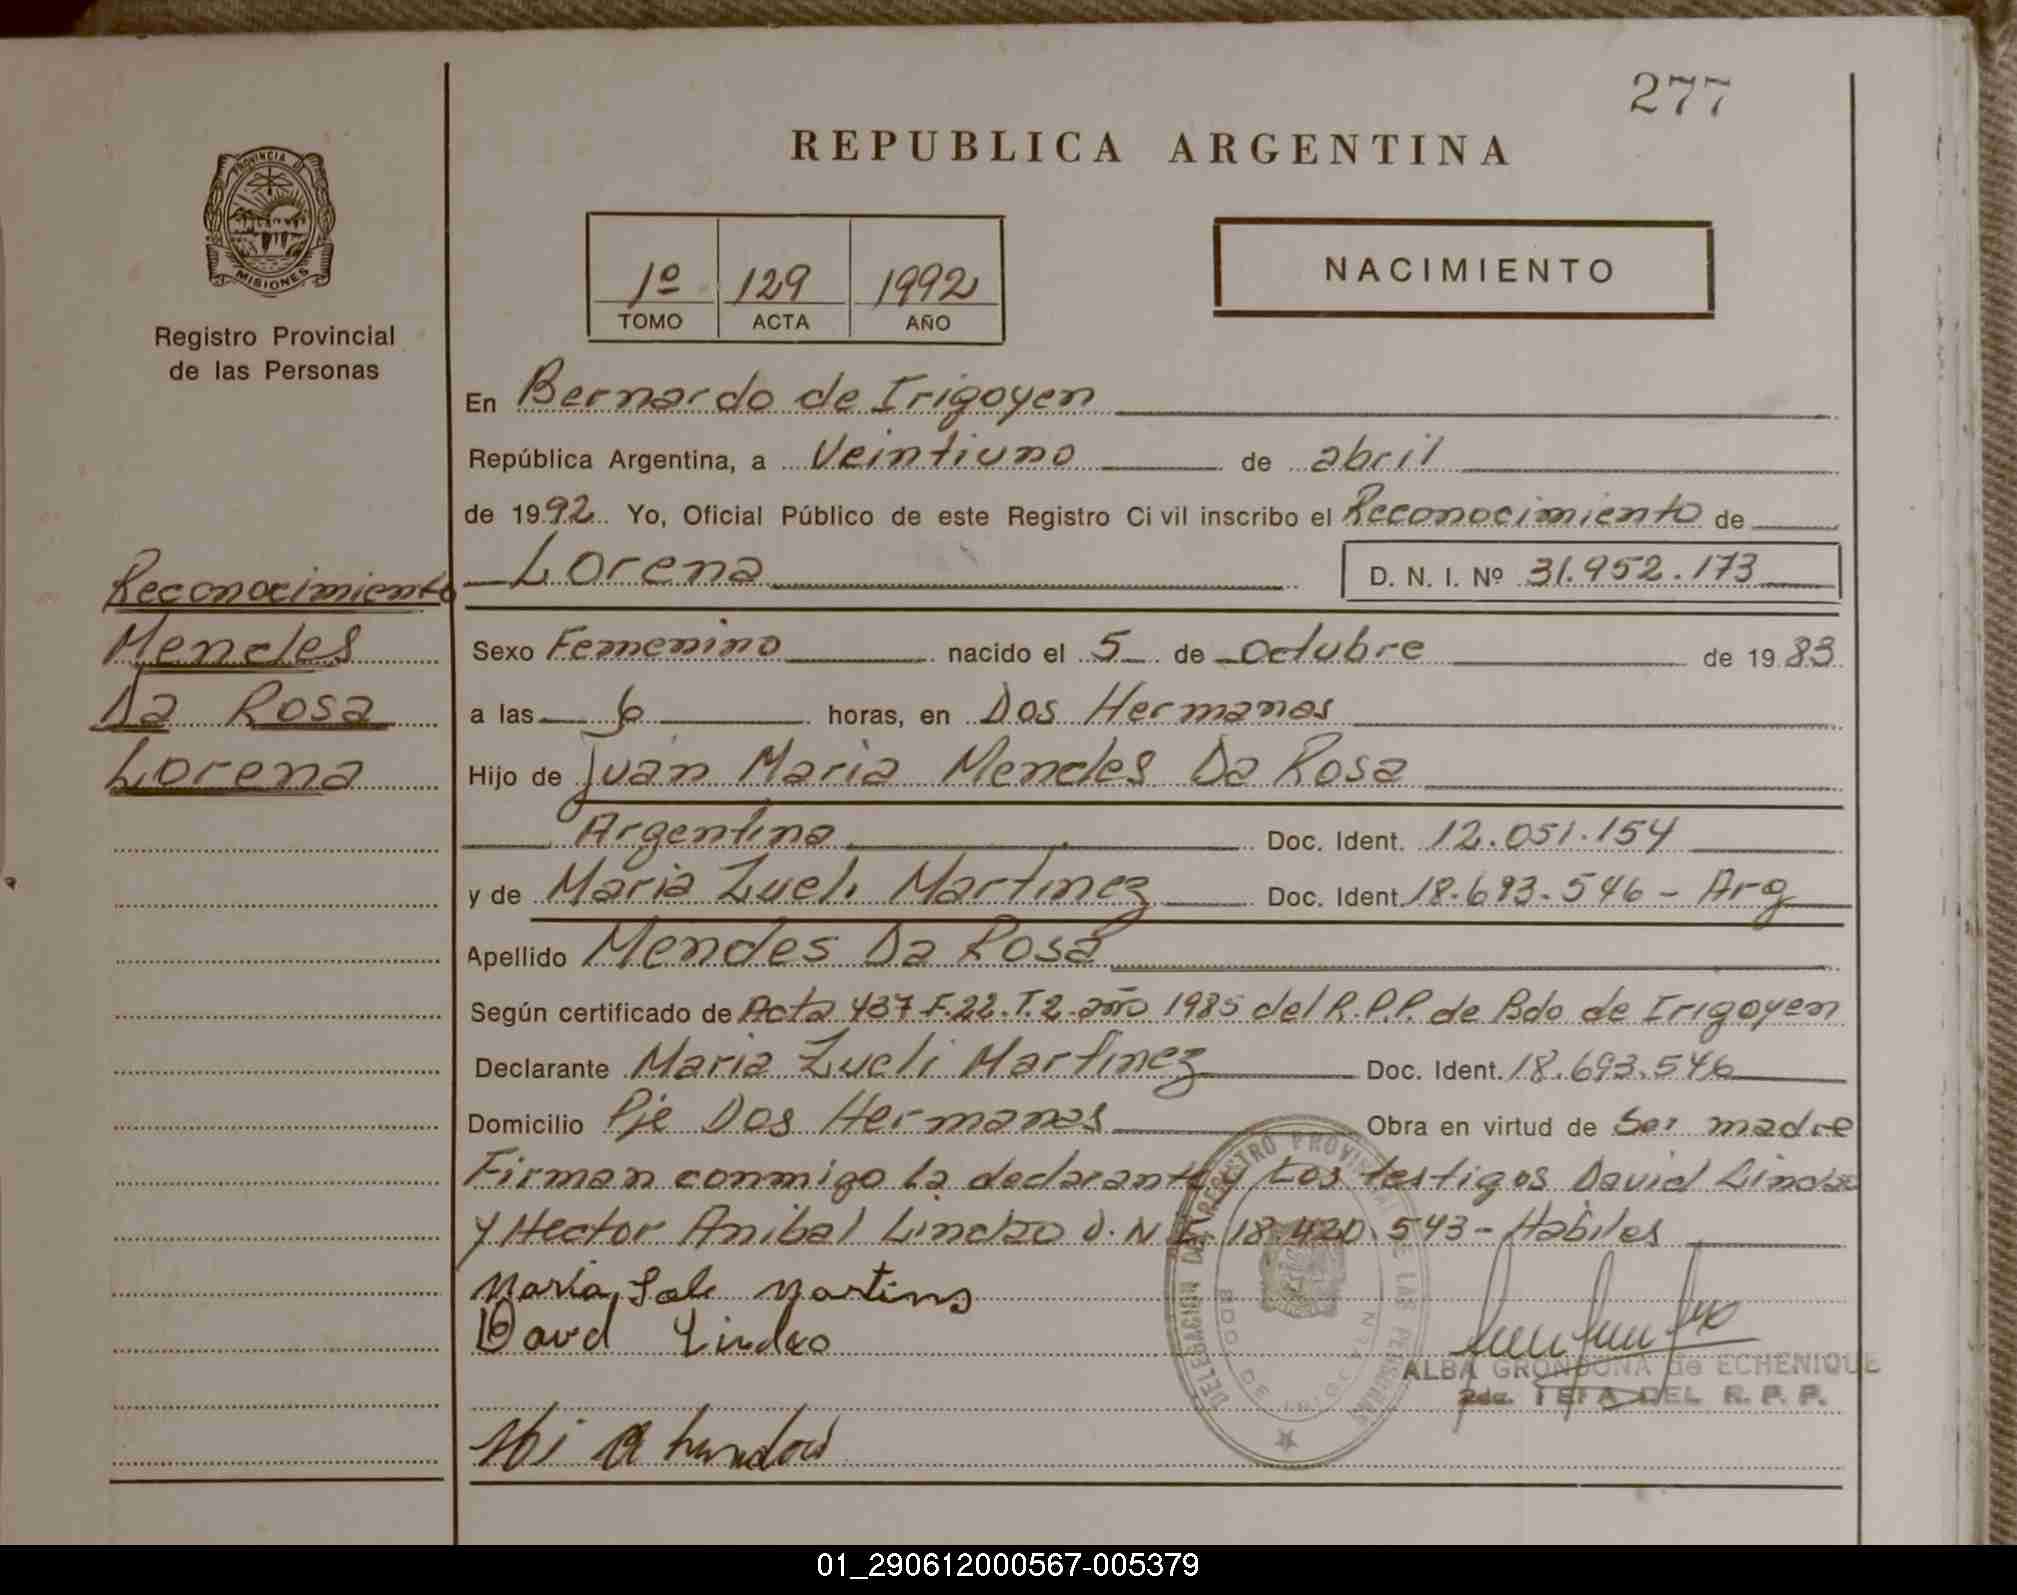 277
REPUBLICA ARGENTINA
PROVINCIA DE MISIONES
Registro Provincial
de las Personas
1º 129 1992
TOMO ACTA AÑO
NACIMIENTO
En Bernardo de Irigoyen
República Argentina, a Veintiuno de abril
de 1992 Yo, Oficial Público de este Registro Civil inscribo el Reconocimiento de
Lorena D. N. I. Nº 31.952.173
Reconocimiento
Mendes
Da Rosa
Lorena
Sexo Femenino nacido el 5 de octubre de 1983
a las 6 horas, en Dos Hermanas
Hijo de Juan Maria Mendes Da Rosa
Argentina Doc. Ident. 12.051.154
y de Maria Zueli Martinez Doc. Ident. 18.693.546 - Arg
Apellido Mendes Da Rosa
Según certificado de Acta 437 F.22.T.2.año 1985 del R.P.P. de Bdo de Irigoyen
Declarante Maria Zueli Martinez Doc. Ident. 18.693.546
Domicilio Pje Dos Hermanas Obra en virtud de Ser madre
Firman conmigo la declarante y Los testigos David Lindao
y Hector Anibal Lindao D.N.I. 18.420.543 - Habiles
Maria Martins
David Lindao
DELEGACION DEL REGISTRO PROVINCIAL DE LAS PERSONAS
BDO. DE IRIGOYEN
ALBA GRONDONA de ECHENIQUE
2da. JEFA DEL R. P. P.
01_290612000567-005379